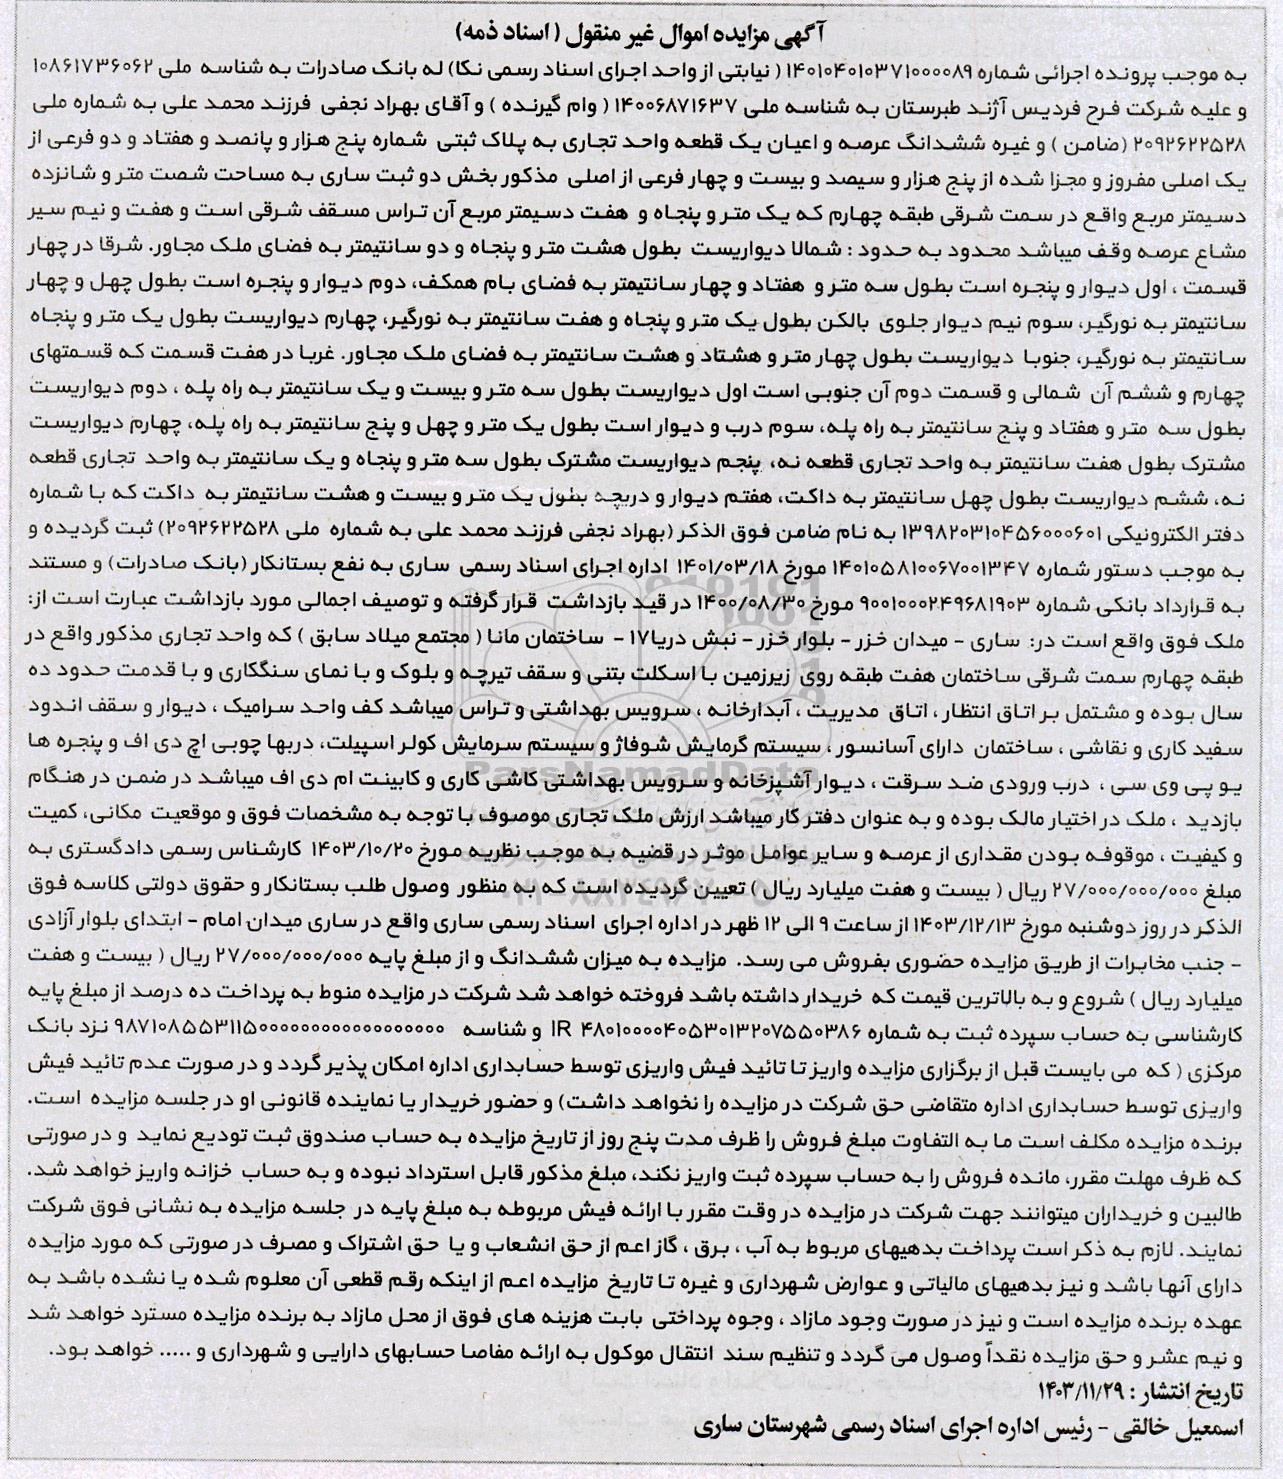 آگهی مزایده اموال غیر منقول ( اسناد ذمه)
به موجب پرونده اجرائی شماره ۱۴۰۱۰۴۰۱۰۳۷۱۰۰۰۰۸۹ ( نیابتی از واحد اجرای اسناد رسمی نکا) له بانک صادرات به شناسه ملی ۱۰۸۶۱۷۳۶۰۶۲
و علیه شرکت فرح فردیس آژند طبرستان به شناسه ملی ۱۴۰۰۶۸۷۱۶۳۷ ( وام گیرنده ) و آقای بهراد نجفی فرزند محمد علی به شماره ملی
۲۰۹۲۶۲۲۵۲۸ (ضامن ) و غیره ششدانگ عرصه و اعیان یک قطعه واحد تجاری به پلاک ثبتی شماره پنج هزار و پانصد و هفتاد و دو فرعی از
یک اصلی مفروز و مجزا شده از پنج هزار و سیصد و بیست و چهار فرعی از اصلی مذکور بخش دو ثبت ساری به مساحت شصت متر و شانزده
دسیمتر مربع واقع در سمت شرقی طبقه چهارم که یک متر و پنجاه و هفت دسیمتر مربع آن تراس مسقف شرقی است و هفت و نیم سیر
مشاع عرصه وقف میباشد محدود به حدود : شمالا دیواریست بطول هشت متر و پنجاه و دو سانتیمتر به فضای ملک مجاور. شرقا در چهار
قسمت ، اول دیوار و پنجره است بطول سه متر و هفتاد و چهار سانتیمتر به فضای بام همکف، دوم دیوار و پنجره است بطول چهل و چهار
سانتیمتر به نورگیر، سوم نیم دیوار جلوی بالکن بطول یک متر و پنجاه و هفت سانتیمتر به نورگیر، چهارم دیواریست بطول یک متر و پنجاه
سانتیمتر به نورگیر، جنوبا دیواریست بطول چهار متر و هشتاد و هشت سانتیمتر به فضای ملک مجاور. غربا در هفت قسمت که قسمتهای
چهارم و ششم آن شمالی و قسمت دوم آن جنوبی است اول دیواریست بطول سه متر و بیست و یک سانتیمتر به راه پله ، دوم دیواریست
بطول سه متر و هفتاد و پنج سانتیمتر به راه پله، سوم درب و دیوار است بطول یک متر و چهل و پنج سانتیمتر به راه پله، چهارم دیواریست
مشترک بطول هفت سانتیمتر به واحد تجاری قطعه نه، پنجم دیواریست مشترک بطول سه متر و پنجاه و یک سانتیمتر به واحد تجاری قطعه
نه، ششم دیواریست بطول چهل سانتیمتر به داکت، هفتم دیوار و دریچه بطول یک متر و بیست و هشت سانتیمتر به داکت که با شماره
دفتر الکترونیکی ۱۳۹۸۲۰۳۱۰۴۵۶۰۰۰۶۰۱ به نام ضامن فوق الذکر (بهراد نجفی فرزند محمد علی به شماره ملی ۲۰۹۲۶۲۲۵۲۸) ثبت گردیده و
به موجب دستور شماره ۱۴۰۱۰۵۸۱۰۰۶۷۰۰۱۳۴۷ مورخ ۱۴۰۱/۰۳/۱۸ اداره اجرای اسناد رسمی ساری به نفع بستانکار (بانک صادرات) و مستند
به قرارداد بانکی شماره ۹۰۰۱۰۰۰۲۴۹۶۸۱۹۰۳ مورخ ۱۴۰۰/۰۸/۳۰ در قید بازداشت قرار گرفته و توصیف اجمالی مورد بازداشت عبارت است از:
ملک فوق واقع است در: ساری - میدان خزر - بلوار خزر - نبش دریا۱۷ - ساختمان مانا ( مجتمع میلاد سابق ) که واحد تجاری مذکور واقع در
طبقه چهارم سمت شرقی ساختمان هفت طبقه روی زیرزمین با اسکلت بتنی و سقف تیرچه و بلوک و با نمای سنگکاری و با قدمت حدود ده
سال بوده و مشتمل بر اتاق انتظار ، اتاق مدیریت ، آبدارخانه ، سرویس بهداشتی و تراس میباشد کف واحد سرامیک ، دیوار و سقف اندود
سفید کاری و نقاشی ، ساختمان دارای آسانسور ، سیستم گرمایش شوفاژ و سیستم سرمایش کولر اسپیلت، دربها چوبی اچ دی اف و پنجره ها
یو پی وی سی ، درب ورودی ضد سرقت ، دیوار آشپزخانه و سرویس بهداشتی کاشی کاری و کابینت ام دی اف میباشد در ضمن در هنگام
بازدید ، ملک در اختیار مالک بوده و به عنوان دفتر کار میباشد ارزش ملک تجاری موصوف با توجه به مشخصات فوق و موقعیت مکانی، کمیت
و کیفیت ، موقوفه بودن مقداری از عرصه و سایر عوامل موثر در قضیه به موجب نظریه مورخ ۱۴۰۳/۱۰/۲۰ کارشناس رسمی دادگستری به
مبلغ ۲۷/۰۰۰/۰۰۰/۰۰۰ ریال ( بیست و هفت میلیارد ریال ) تعیین گردیده است که به منظور وصول طلب بستانکار و حقوق دولتی کلاسه فوق
الذکر در روز دوشنبه مورخ ۱۴۰۳/۱۲/۱۳ از ساعت ۹ الی ۱۲ ظهر در اداره اجرای اسناد رسمی ساری واقع در ساری میدان امام - ابتدای بلوار آزادی
- جنب مخابرات از طریق مزایده حضوری بفروش می رسد. مزایده به میزان ششدانگ و از مبلغ پایه ۲۷/۰۰۰/۰۰۰/۰۰۰ ریال ( بیست و هفت
میلیارد ریال ) شروع و به بالاترین قیمت که خریدار داشته باشد فروخته خواهد شد شرکت در مزایده منوط به پرداخت ده درصد از مبلغ پایه
کارشناسی به حساب سپرده ثبت به شماره IR ۴۸۰۱۰۰۰۰۴۰۵۳۰۱۳۲۰۷۵۵۰۳۸۶ و شناسه ۹۸۷۱۰۸۵۵۳۱۱۵۰۰۰۰۰۰۰۰۰۰۰۰۰۰۰۰۰ نزد بانک
مرکزی ( که می بایست قبل از برگزاری مزایده واریز تا تائید فیش واریزی توسط حسابداری اداره امکان پذیر گردد و در صورت عدم تائید فیش
واریزی توسط حسابداری اداره متقاضی حق شرکت در مزایده را نخواهد داشت) و حضور خریدار یا نماینده قانونی او در جلسه مزایده است.
برنده مزایده مکلف است ما به التفاوت مبلغ فروش را ظرف مدت پنج روز از تاریخ مزایده به حساب صندوق ثبت تودیع نماید و در صورتی
که ظرف مهلت مقرر، مانده فروش را به حساب سپرده ثبت واریز نکند، مبلغ مذکور قابل استرداد نبوده و به حساب خزانه واریز خواهد شد.
طالبین و خریداران میتوانند جهت شرکت در مزایده در وقت مقرر با ارائه فیش مربوطه به مبلغ پایه در جلسه مزایده به نشانی فوق شرکت
نمایند. لازم به ذکر است پرداخت بدهیهای مربوط به آب ، برق ، گاز اعم از حق انشعاب و یا حق اشتراک و مصرف در صورتی که مورد مزایده
دارای آنها باشد و نیز بدهیهای مالیاتی و عوارض شهرداری و غیره تا تاریخ مزایده اعم از اینکه رقم قطعی آن معلوم شده یا نشده باشد به
عهده برنده مزایده است و نیز در صورت وجود مازاد ، وجوه پرداختی بابت هزینه های فوق از محل مازاد به برنده مزایده مسترد خواهد شد
و نیم عشر و حق مزایده نقداً وصول می گردد و تنظیم سند انتقال موکول به ارائه مفاصا حسابهای دارایی و شهرداری و ..... خواهد بود.
تاریخ انتشار : ۱۴۰۳/۱۱/۲۹
اسمعیل خالقی - رئیس اداره اجرای اسناد رسمی شهرستان ساری
ParsNamadData